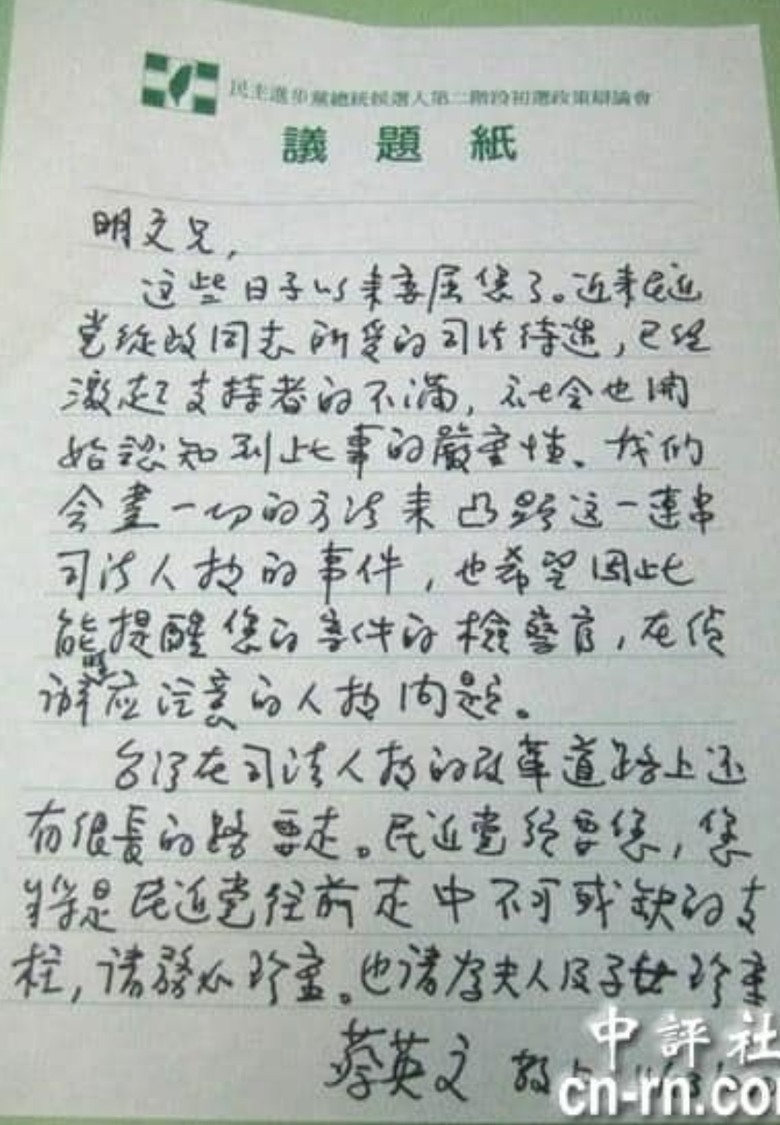 民主進步黨總統候選人第二階段初選政策辯論會
議題紙
明文兄，
这些日子以来委屈您了。近来民进
党從政同志所受的司法待遇，已經
激起了支持者的不滿，社会也開
始認知到此事的嚴重性。我们
会盡一切的方法来凸顯这一連串
司法人权的事件，也希望因此
能提醒您的案件的檢察官，在偵
辦時应注意的人权问题。
台湾在司法人权的改革道路上还
有很長的路要走。民进党須要您，您
將是民进党往前走中不可或缺的支
柱，请務必珍重。也请尊夫人及子女珍重
蔡英文 敬上
中評社
cn-rn.com